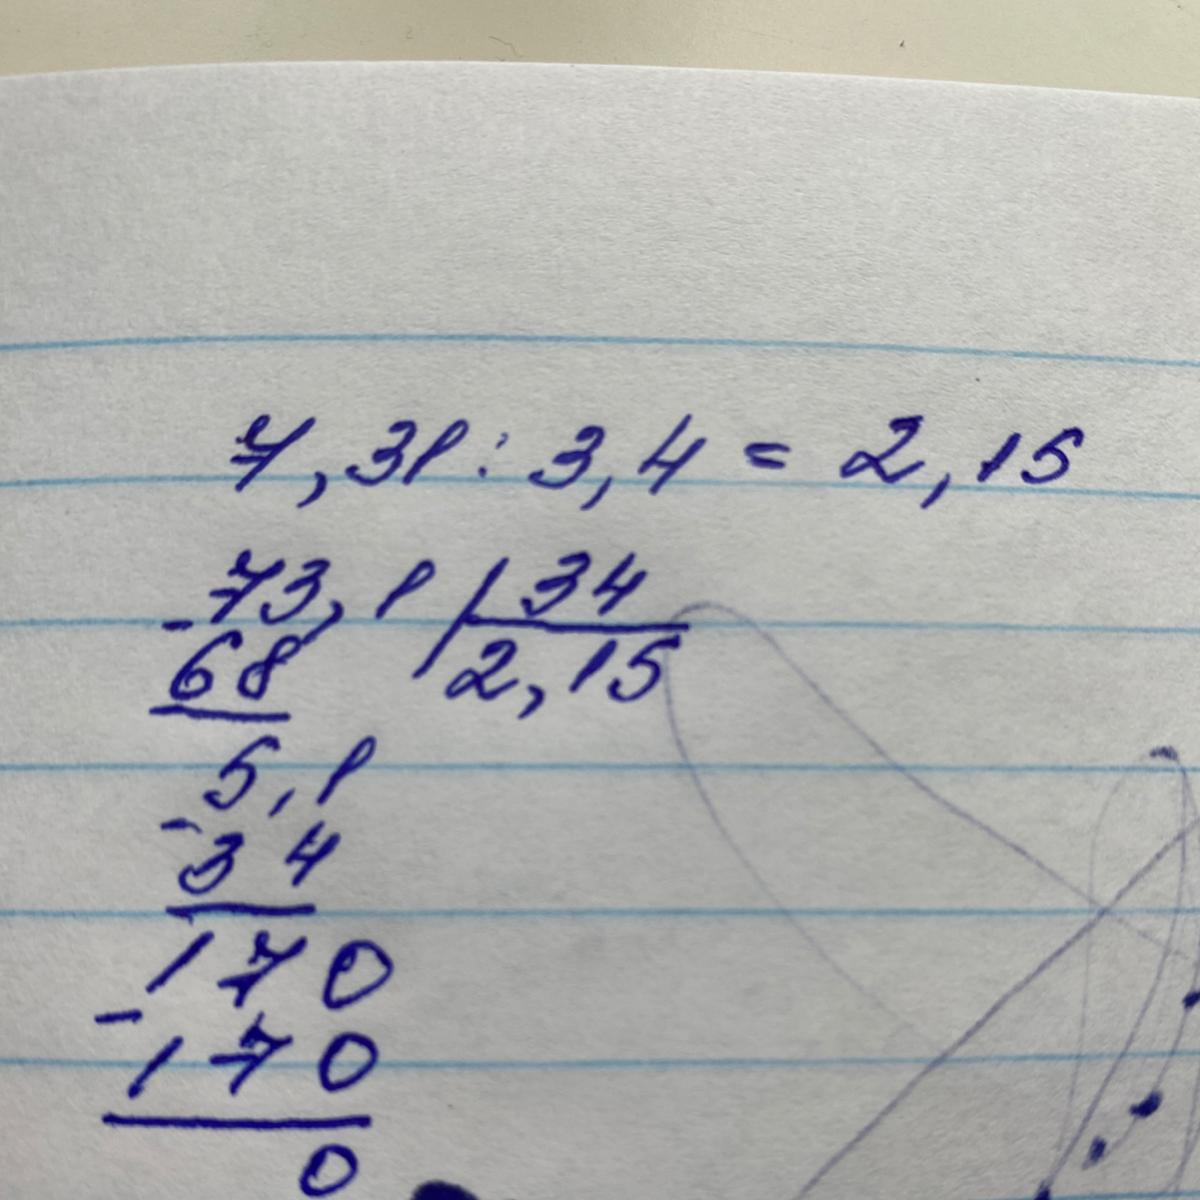 7,31 : 3,4 = 2,15
-73,1 | 34
68 2,15
5,1
-34
170
-170
0